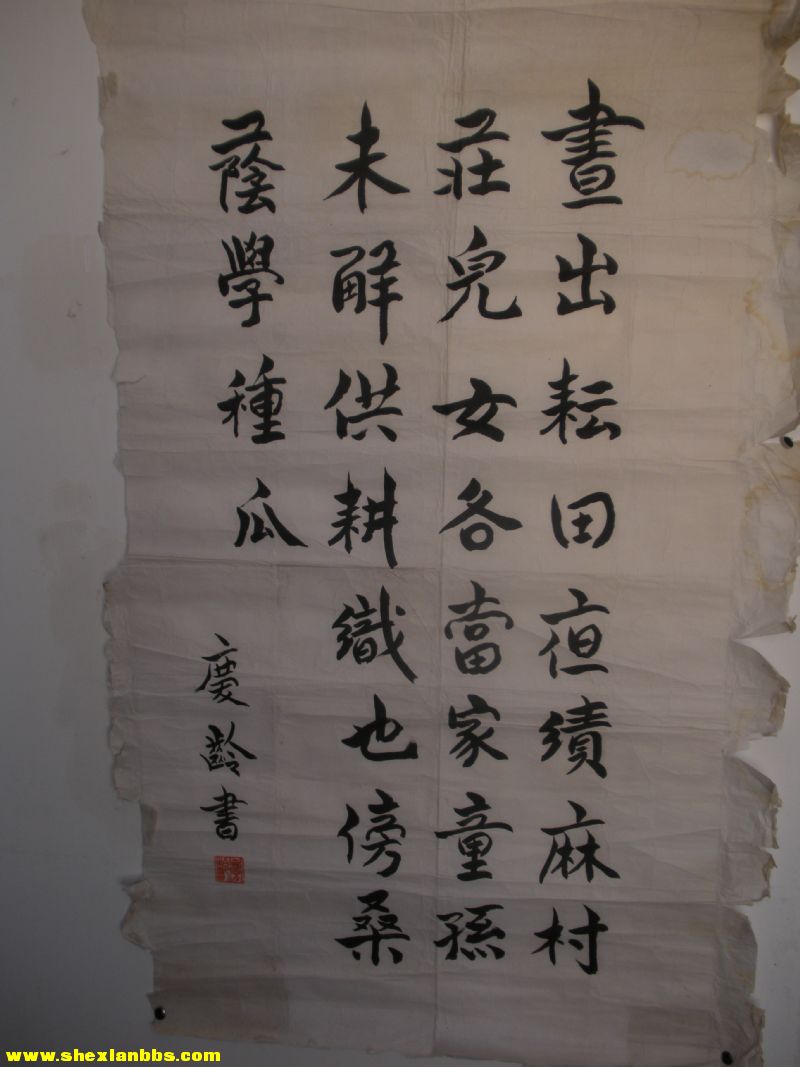 晝出耘田夜績麻村
莊兒女各當家童孫
未解供耕織也傍桑
蔭學種瓜
慶齡書
www.shexianbbs.com